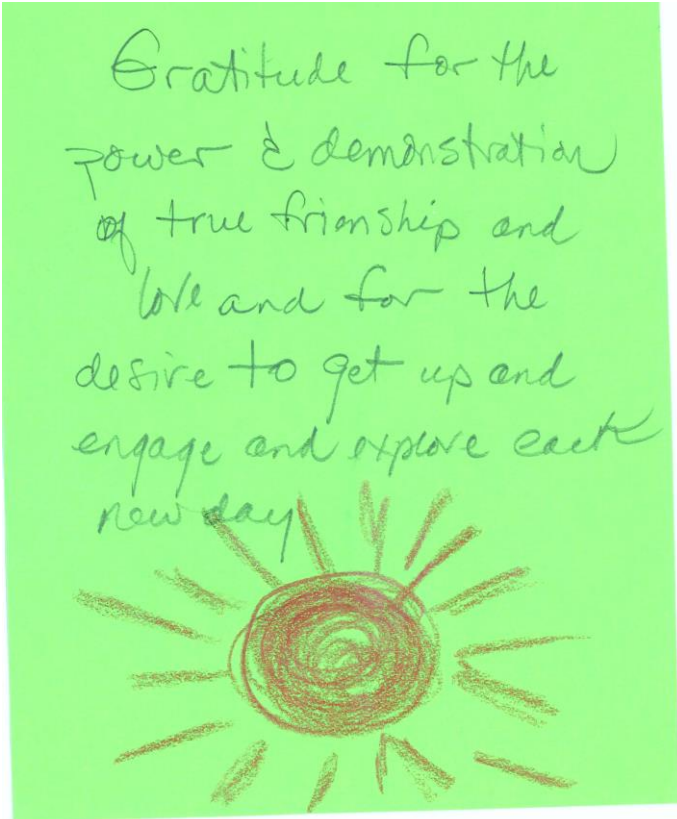 Gratitude for the
power & demonstration
of true frienship and
love and for the
desire to get up and
engage and explore each
new day